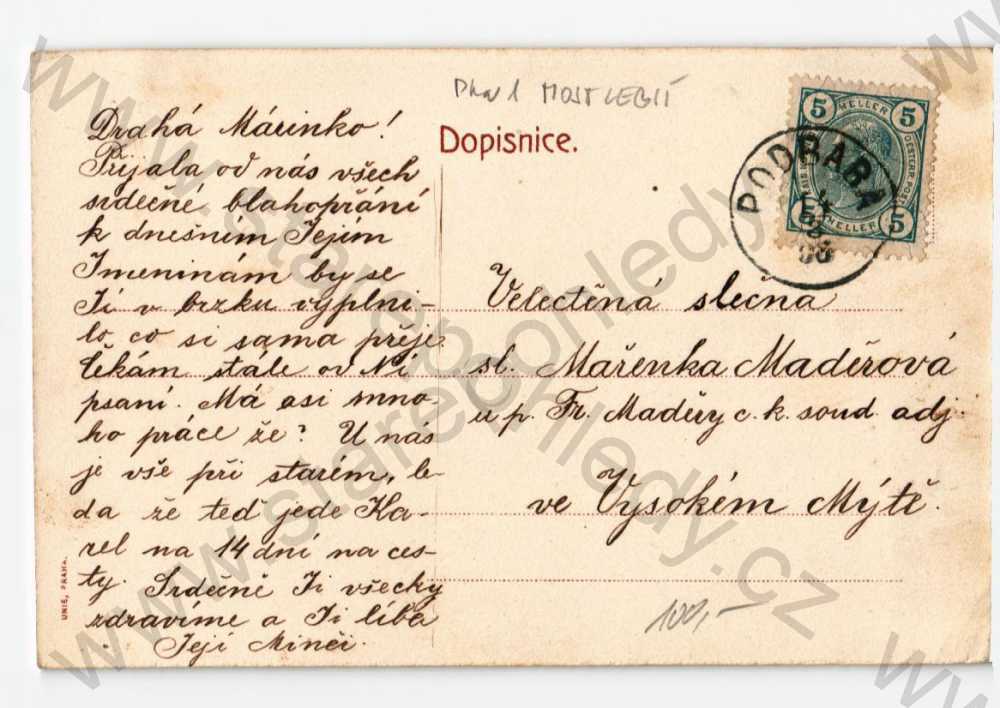 Praha 1 MOST LEGIÍ
Dopisnice.
Drahá Márinko!
Přijala od nás všech
srdečné blahopřání
k dnešním Jejím
Jmeninám by se
Ji v brzku vyplni-
lo, co si sama přeje.
Čekám stále od Ní
psaní. Má asi mno-
ho práce že? U nás
je vše při starém, le-
da že teď jede Ka-
rel na 14 dní na ces-
ty. Srdečně Ji všecky
zdravíme a Ji líbá
Její Minči.
Velectěná slečna
sl. Mařenka Maděrová
u p. Fr. Maděry c. k. soud. adj.
ve Vysokém Mýtě.
5 HELLER 5
5 HELLER 5
PODBABA
UNIE, PRAHA.
100,-
www.starepohledy.cz